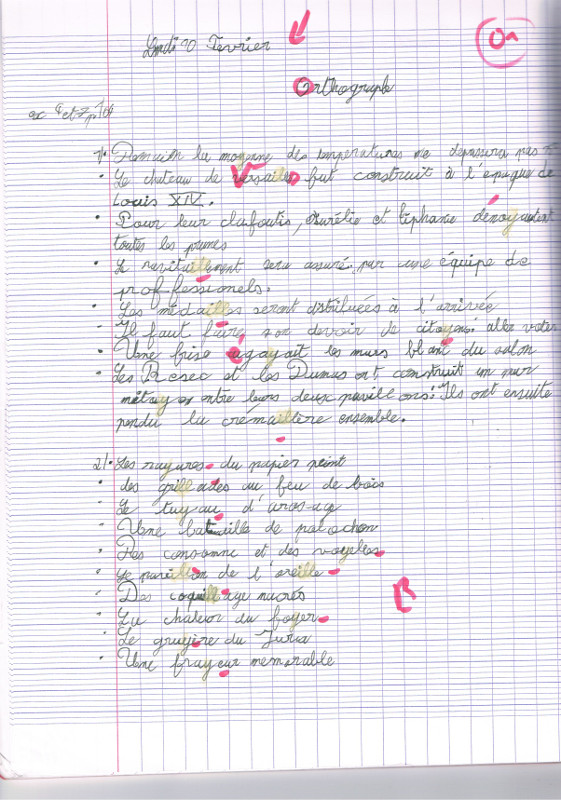 Lundi 10 Fevrier
Orthographe
ex 6 et 7 p 164
1/. Demain la moyenne des températures ne dépassera pas
. Le chateau de versailles fut construit à l'époque de
Louis XIV.
. Pour leur clafoutis, Aurélie et tiphanie dénoyautent
toutes les prunes
. Le ravitaillement sera assuré par une équipe de
proffessionels.
. Les médailles seront distribuées à l'arrivée
- Il faut faire son devoir de citoyen. aller voter
. Une frise égayait les murs blanc du salon
. Les Resec et les Dumas ont construit un mur
mitoyen entre leurs deux pavillons. Ils ont ensuite
pendu la crémaillère ensemble.
2/. Les rayures du papier peint
. des grillades au feu de bois
. Le tuyau d'arosage
- Une bataille de polochon
. Des consonne et des voyelles
. Le pavillon de l'oreille
. Des coquillage nacrés
. La chaleur du foyer
. Le gruyère du Jura
. Une frayeur memorable